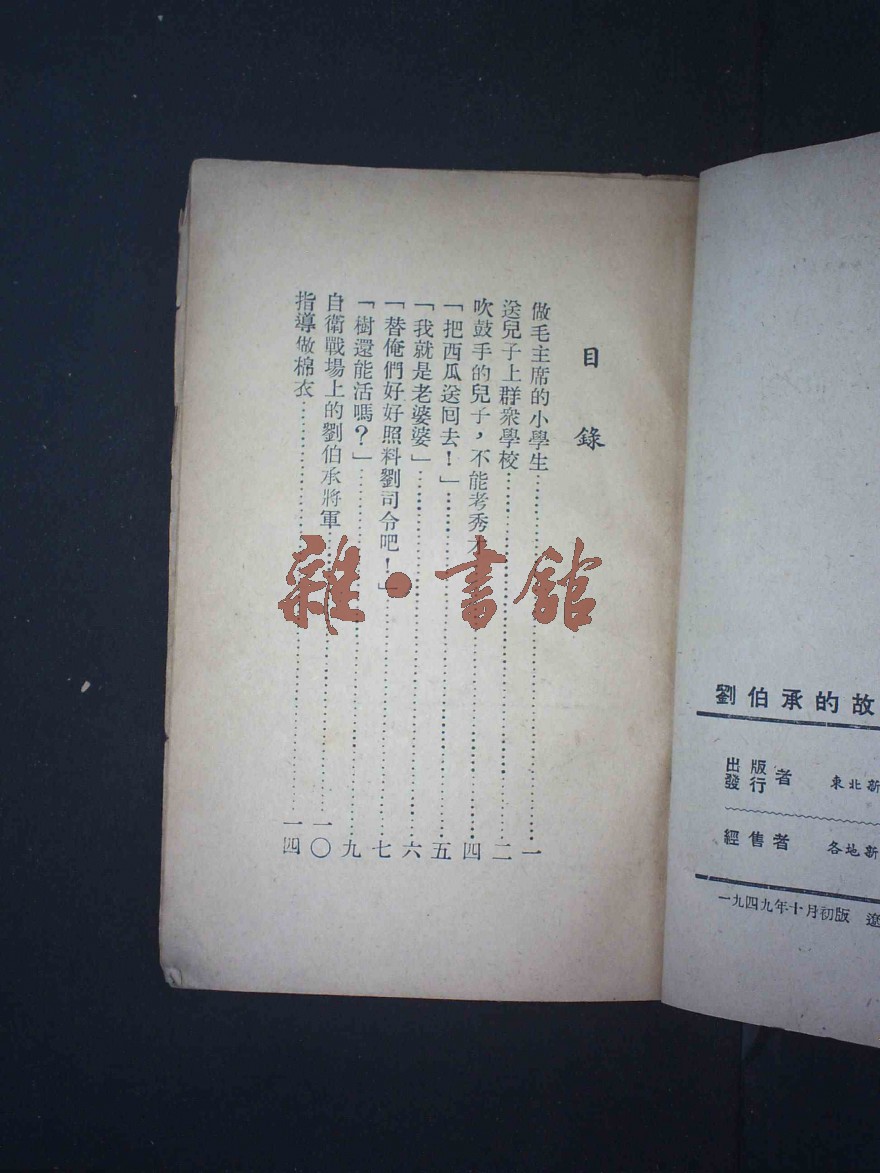 目錄
做毛主席的小學生……一
送兒子上群衆學校……二
吹鼓手的兒子，不能考秀才……四
「把西瓜送回去！」……五
「我就是老婆婆」……六
「替俺們好好照料劉司令吧！」……七
「樹還能活嗎？」……九
自衛戰場上的劉伯承將軍……一〇
指導做棉衣……一四
雜·書館
劉伯承的故
出版
發行者 東北新
經售者 各地新
一九四九年十月初版 遼